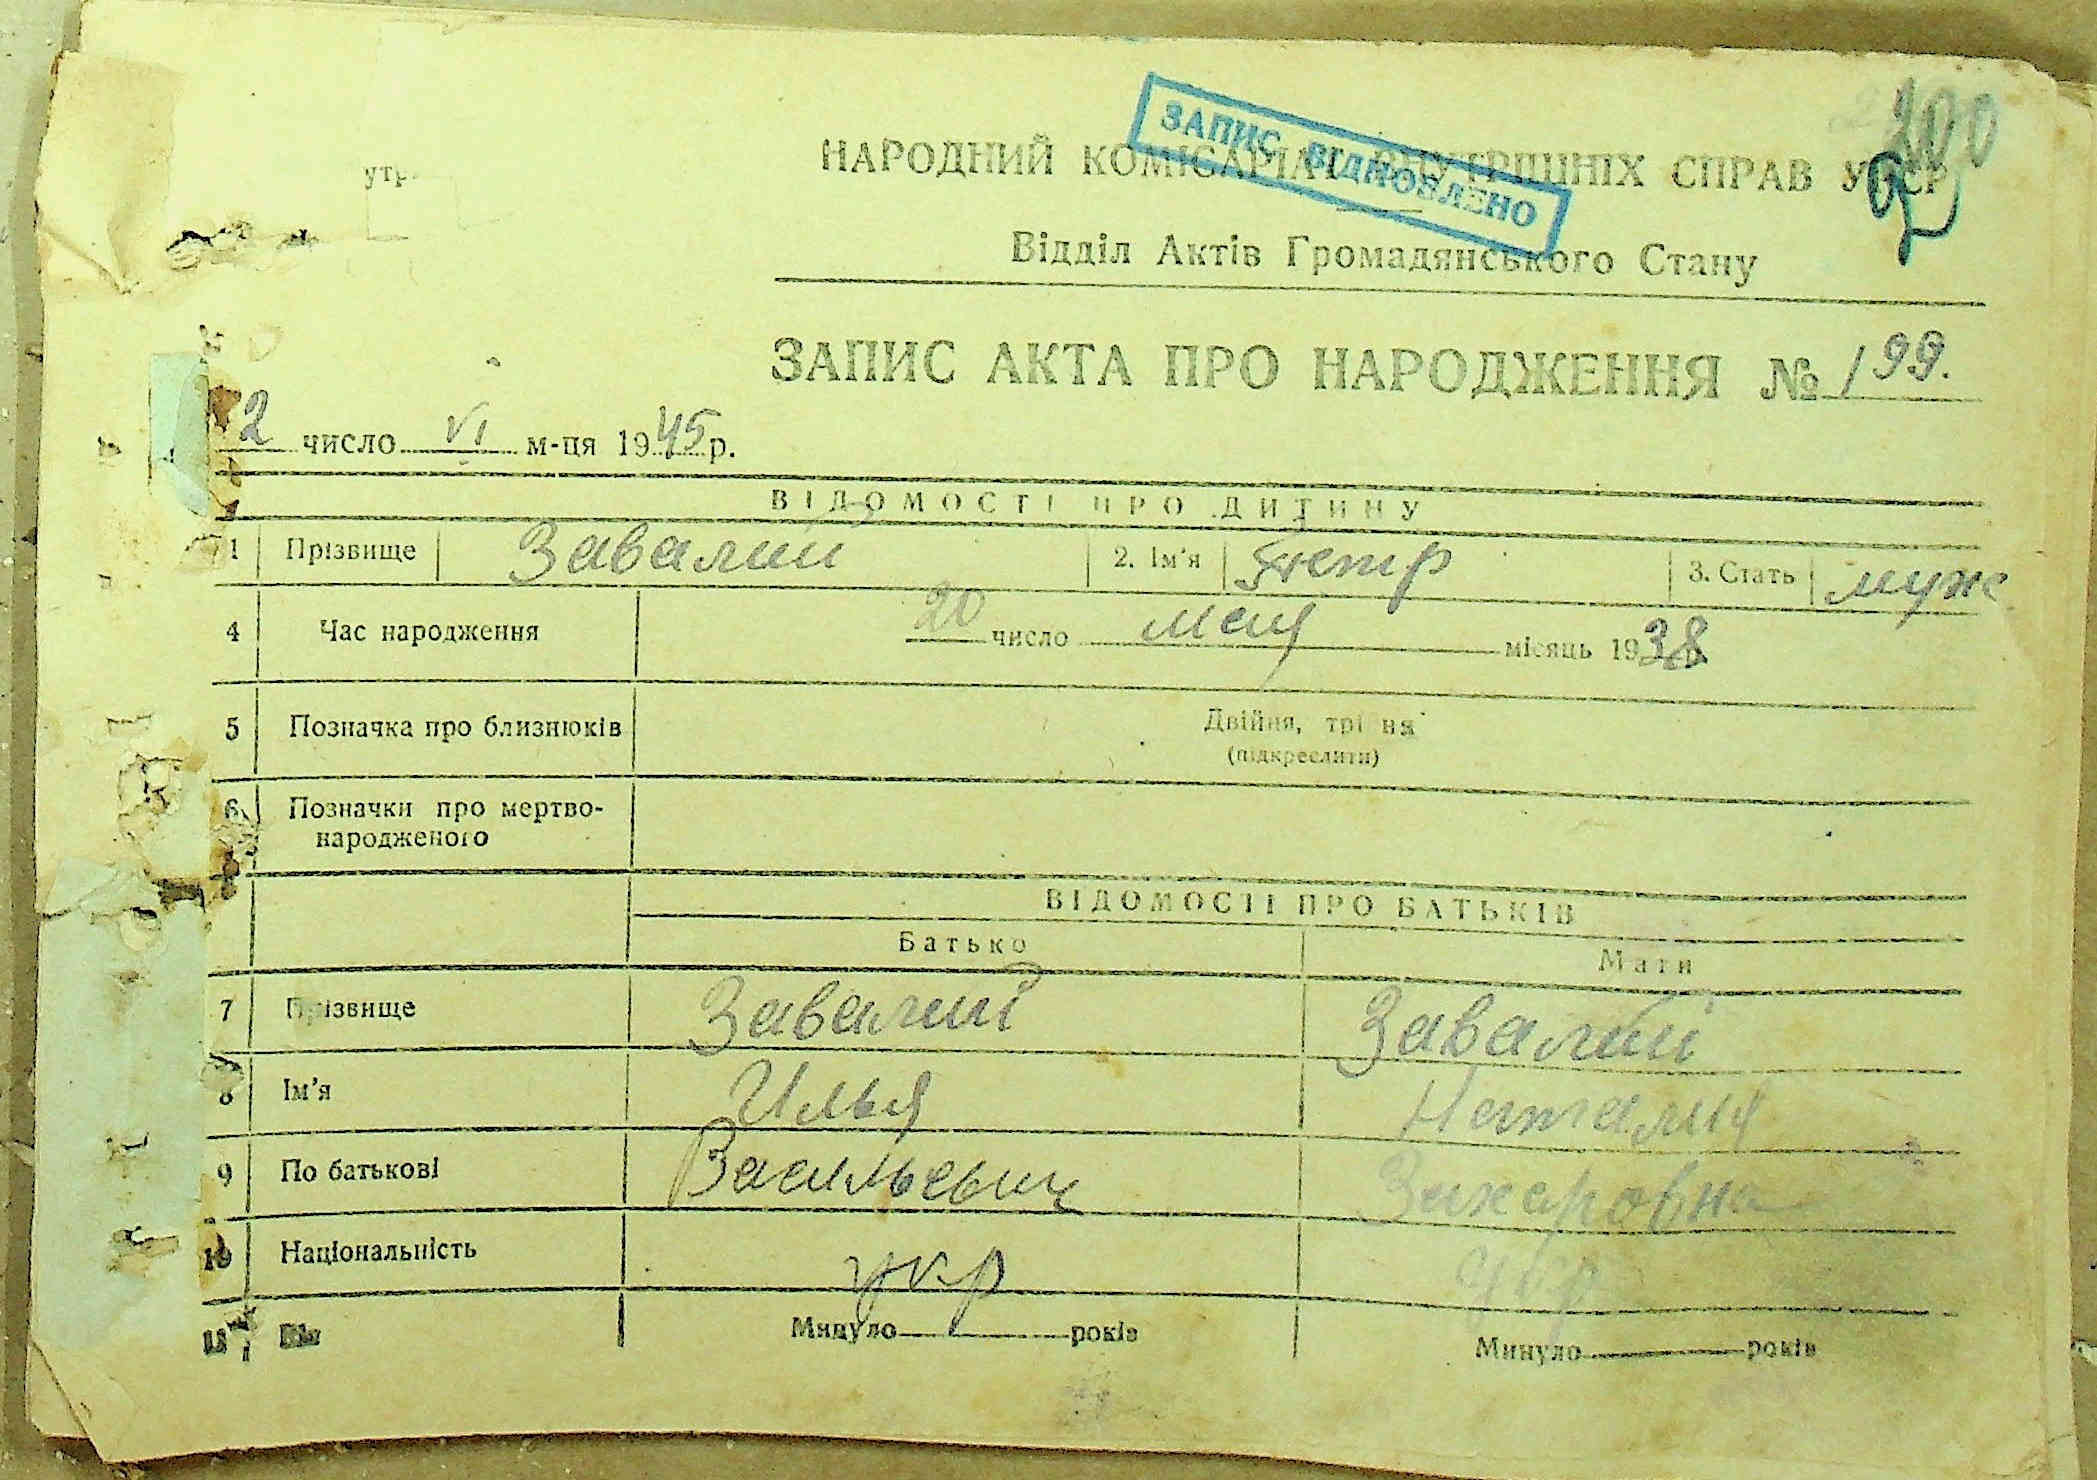 200
ЗАПИС ВІДНОВЛЕНО
утр
НАРОДНИЙ КОМІСАРІАТ ВНУТРІШНІХ СПРАВ УРСР
Відділ Актів Громадянського Стану
ЗАПИС АКТА ПРО НАРОДЖЕННЯ № 199.
2 число VI м-ця 1945 р.
ВІДОМОСТІ ПРО ДИТИНУ
1 Прізвище Завалий 2. Ім'я Петр 3. Стать муж
4 Час народження 20 число мая місяць 1938
5 Позначка про близнюків Двійня, трі ня
(підкреслити)
6 Позначки про мертво-
народженого
ВІДОМОСТІ ПРО БАТЬКІВ
Батько Мати
7 Прізвище Завалий Завалий
8 Ім'я Илья Наталия
9 По батькові Васильевич Захаровна
10 Національність укр укр
11 Минуло років Минуло років